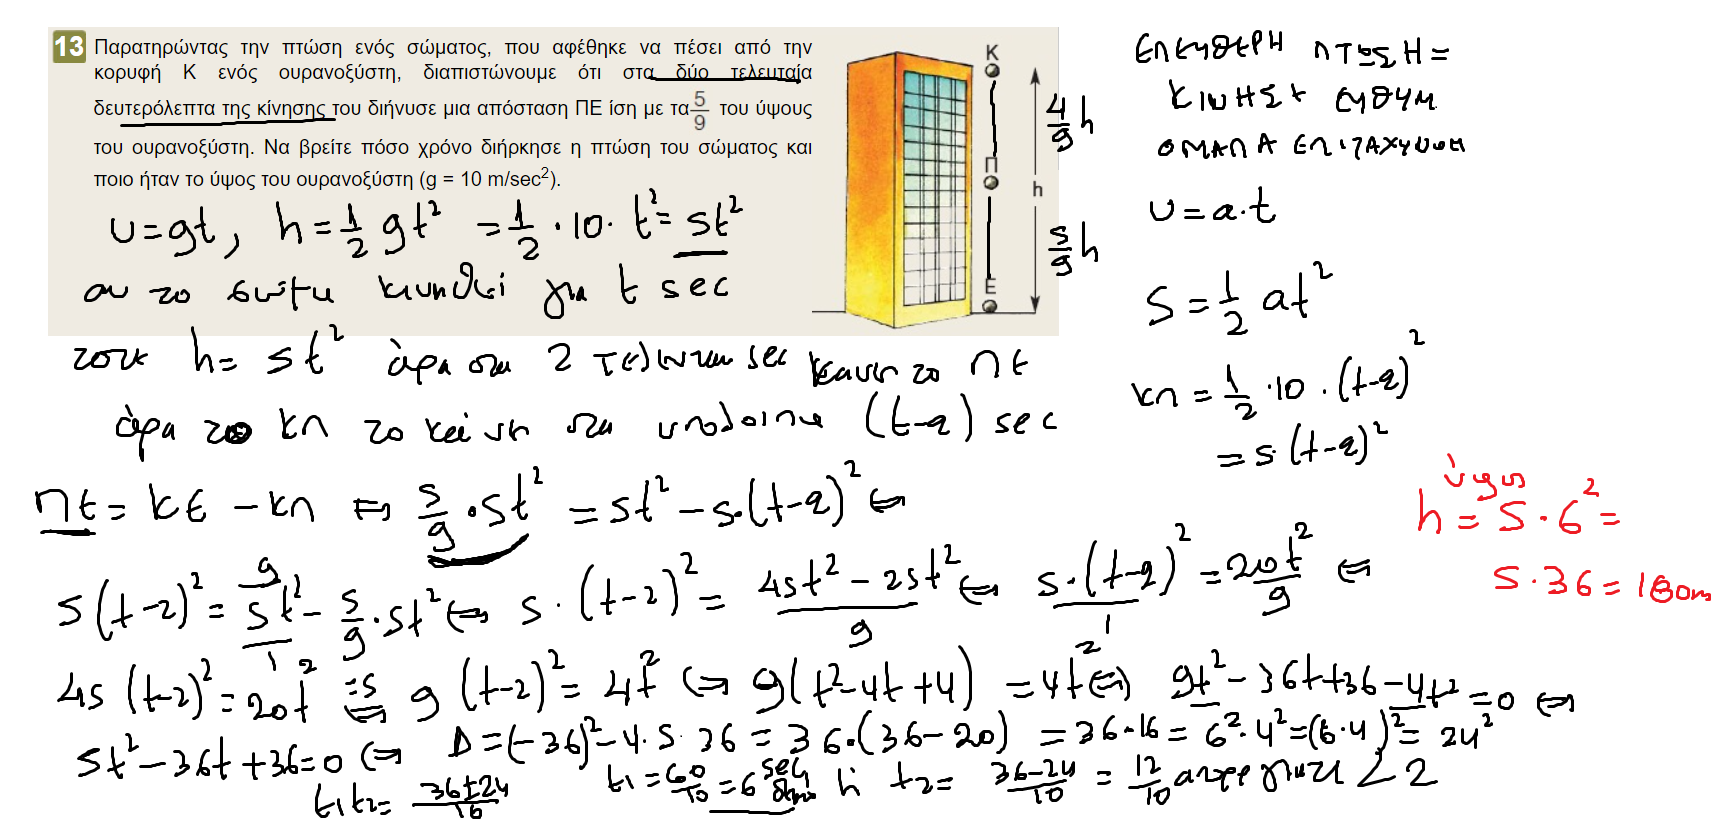 13 Παρατηρώντας την πτώση ενός σώματος, που αφέθηκε να πέσει από την
κορυφή Κ ενός ουρανοξύστη, διαπιστώνουμε ότι στα δύο τελευταία
δευτερόλεπτα της κίνησης του διήνυσε μια απόσταση ΠΕ ίση με τα 5/9 του ύψους
του ουρανοξύστη. Να βρείτε πόσο χρόνο διήρκησε η πτώση του σώματος και
ποιο ήταν το ύψος του ουρανοξύστη (g = 10 m/sec²).
Κ
Π
Ε
h
4/9 h
5/9 h
ΕΛΕΥΘΕΡΗ ΠΤΩΣΗ =
ΚΙΝΗΣΗ ΕΥΘΥΓ
ΟΜΑΛΑ ΕΠΙΤΑΧΥΝΟΜ
υ = a·t
S = 1/2 at²
κπ = 1/2 · 10 · (t-2)²
= 5 (t-2)²
υ = gt, h = 1/2 gt² = 1/2 · 10 · t² = 5t²
αν το σώμα κινηθεί για t sec
τοτε h = 5t² άρα στα 2 τελευταια sec κανει το ΠΕ
άρα το κπ το κάνει στα υπολοιπα (t-2) sec
ΠΕ = κΕ - κπ ⇔ 5/9 · 5t² = 5t² - 5·(t-2)² ⇔
5(t-2)² = 5t²/1 - 5/9 · 5t² ⇔ 5·(t-2)² = (45t² - 25t²)/9 ⇔ 5·(t-2)²/1 = 20t²/9 ⇔
45 (t-2)² = 20t² ⇔ 9 (t-2)² = 4t² ⇔ 9(t²-4t+4) = 4t² ⇔ 9t² - 36t+36-4t² = 0 ⇔
5t² - 36t + 36 = 0 ⇔ Δ = (-36)² - 4·5·36 = 36·(36-20) = 36·16 = 6²·4² = (6·4)² = 24²
t₁,t₂ = (36±24)/10 t₁ = 60/10 = 6 sec ή t₂ = (36-24)/10 = 12/10 < 2
ύψος
h = 5·6² =
5·36 = 180m